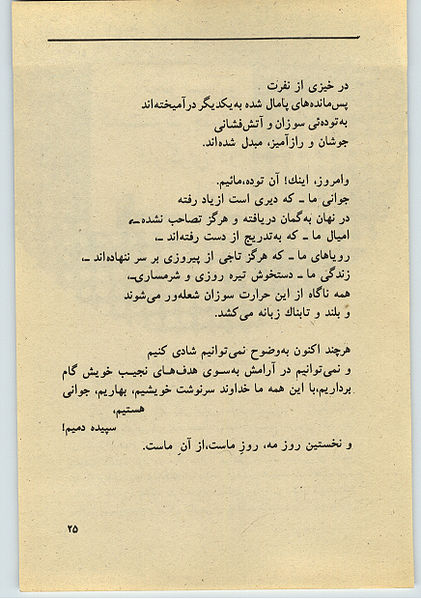 در خیزی از نفرت
پس‌مانده‌های پامال شده به‌یکدیگر درآمیخته‌اند
به‌توده‌ئی سوزان و آتش‌فشانی
جوشان و رازآمیز، مبدل شده‌اند.
وامروز، اینك! آن توده،مائیم.
جوانی ما ـ که دیری است ازیاد رفته
در نهان به‌گمان دریافته و هرگز تصاحب نشده ـ،
امیال ما ـ که به‌تدریج از دست رفته‌اند ـ،
رویاهای ما ـ که هرگز تاجی از پیروزی بر سر ننهاده‌اند ـ،
زندگی ما ـ دستخوش تیره روزی و شرمساری ـ،
همه ناگاه از این حرارت سوزان شعله‌ور می‌شوند
و بلند و تابناك زبانه می‌کشد.
هرچند اکنون به‌وضوح نمی‌توانیم شادی کنیم
و نمی‌توانیم در آرامش به‌سوی هدف‌های نجیب خویش گام
برداریم،با این همه ما خداوند سرنوشت خویشیم، بهاریم، جوانی
هستیم،
سپیده دمیم!
و نخستین روز مه، روزِ ماست،از آنِ ماست.
۲۵